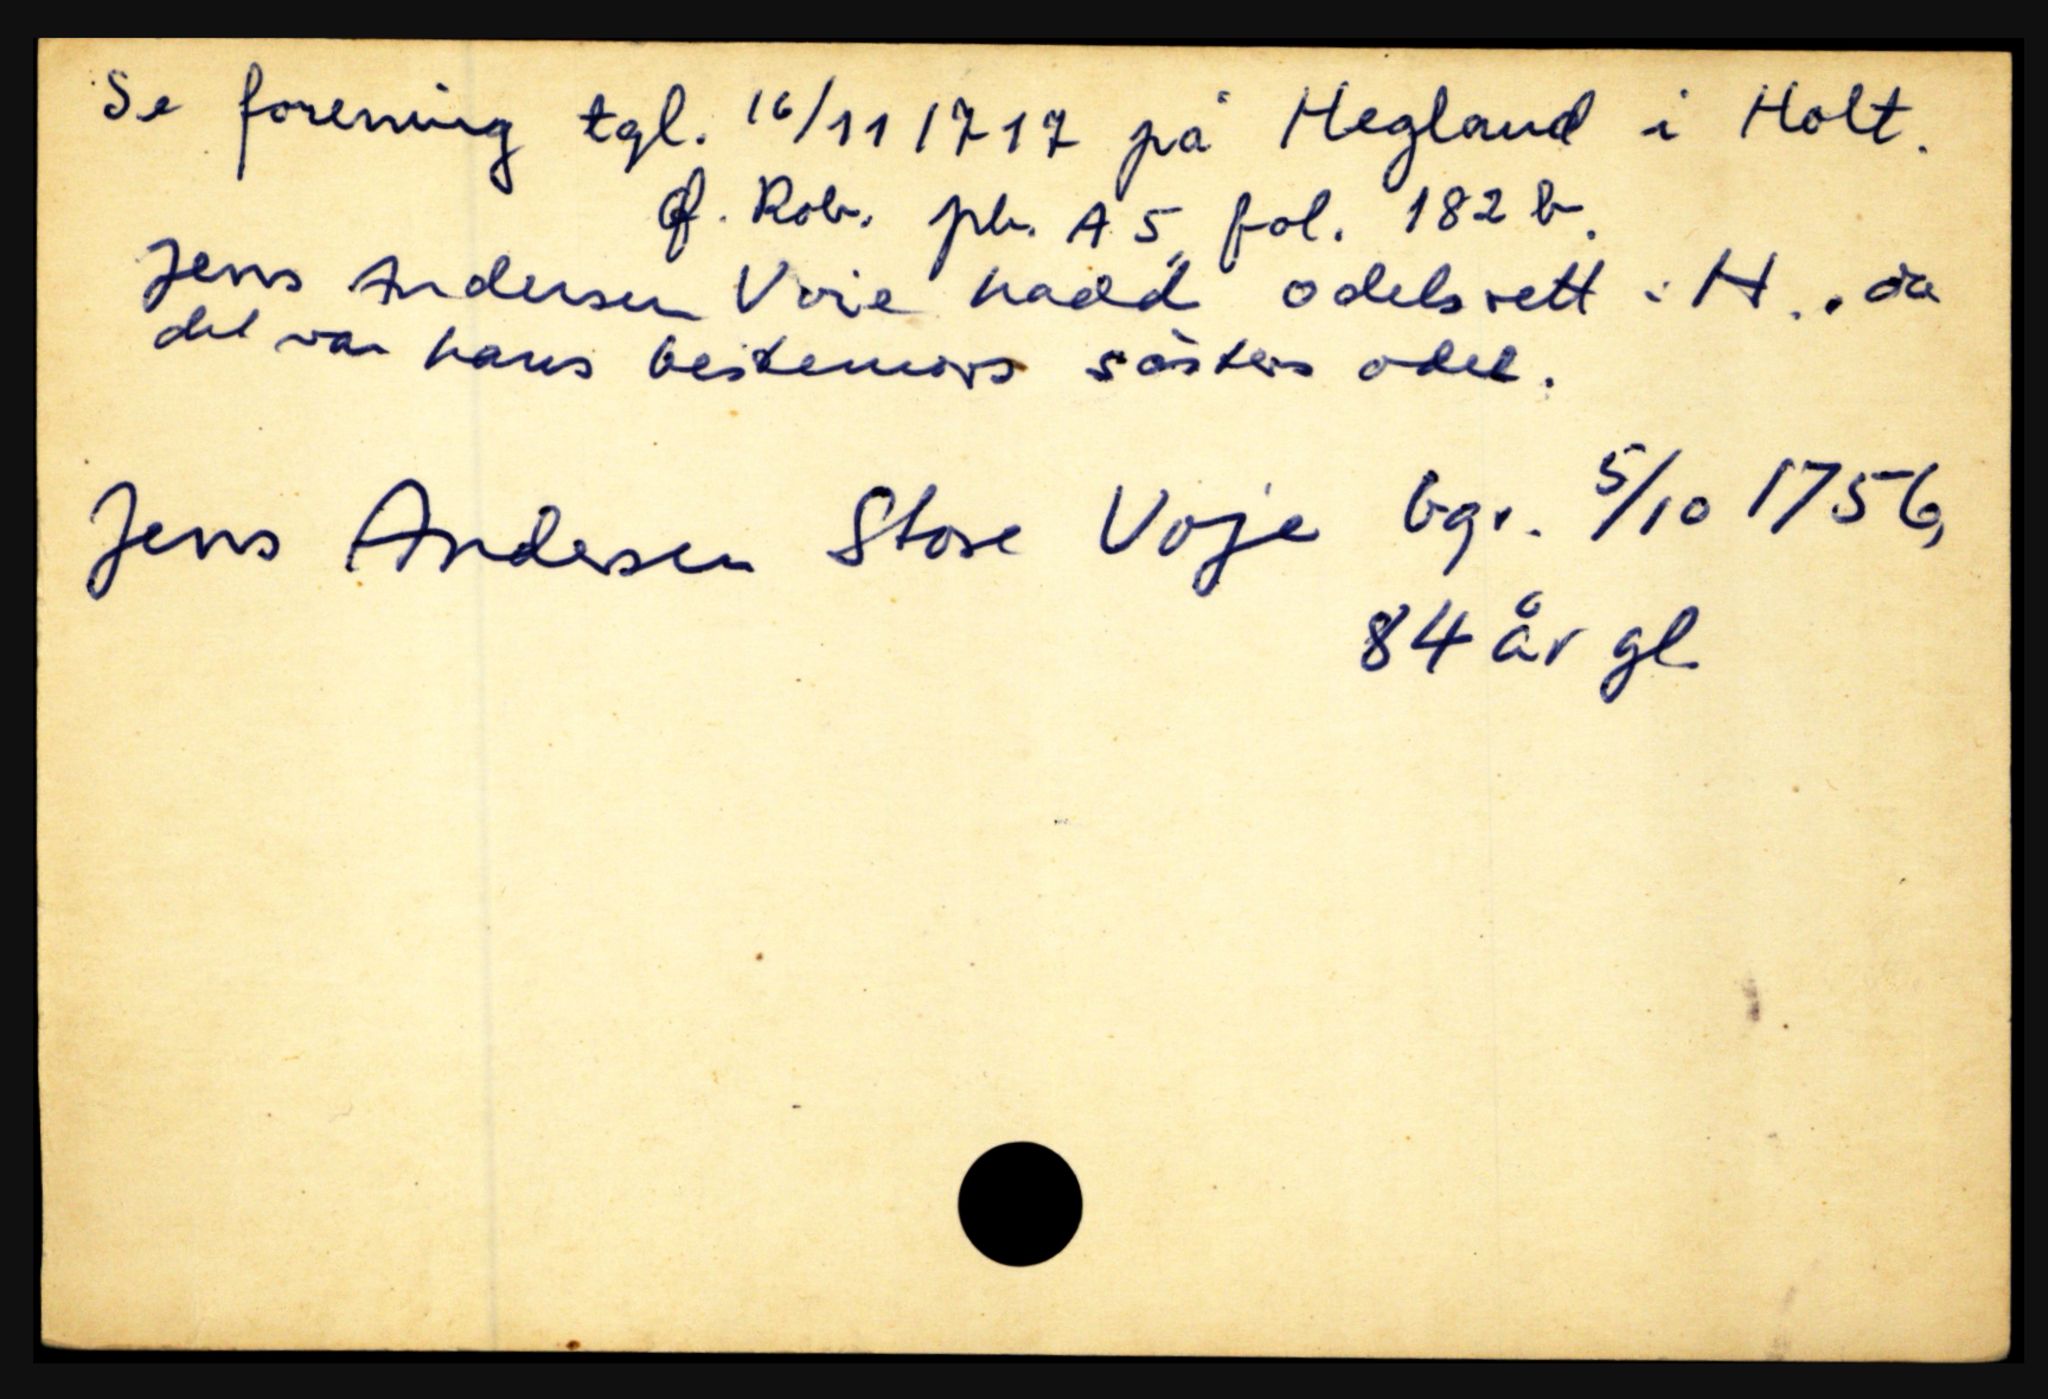 Se forening tgl. 16/11 1717 på Hegland i Holt.
cf. Rob. pb. A 5, fol. 182 b.
Jens Andersen Voie hadd odelsrett i H., da
det var hans bestemors søsters odel.
Jens Andersen Store Voje bgr. 5/10 1756,
84 år gl